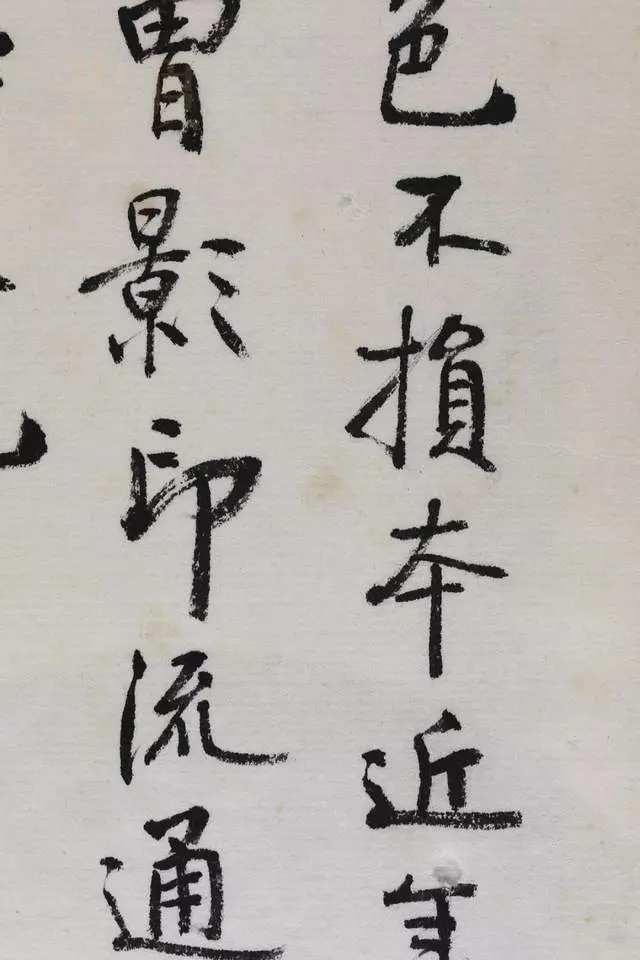 色不損本近年
胄影印流通